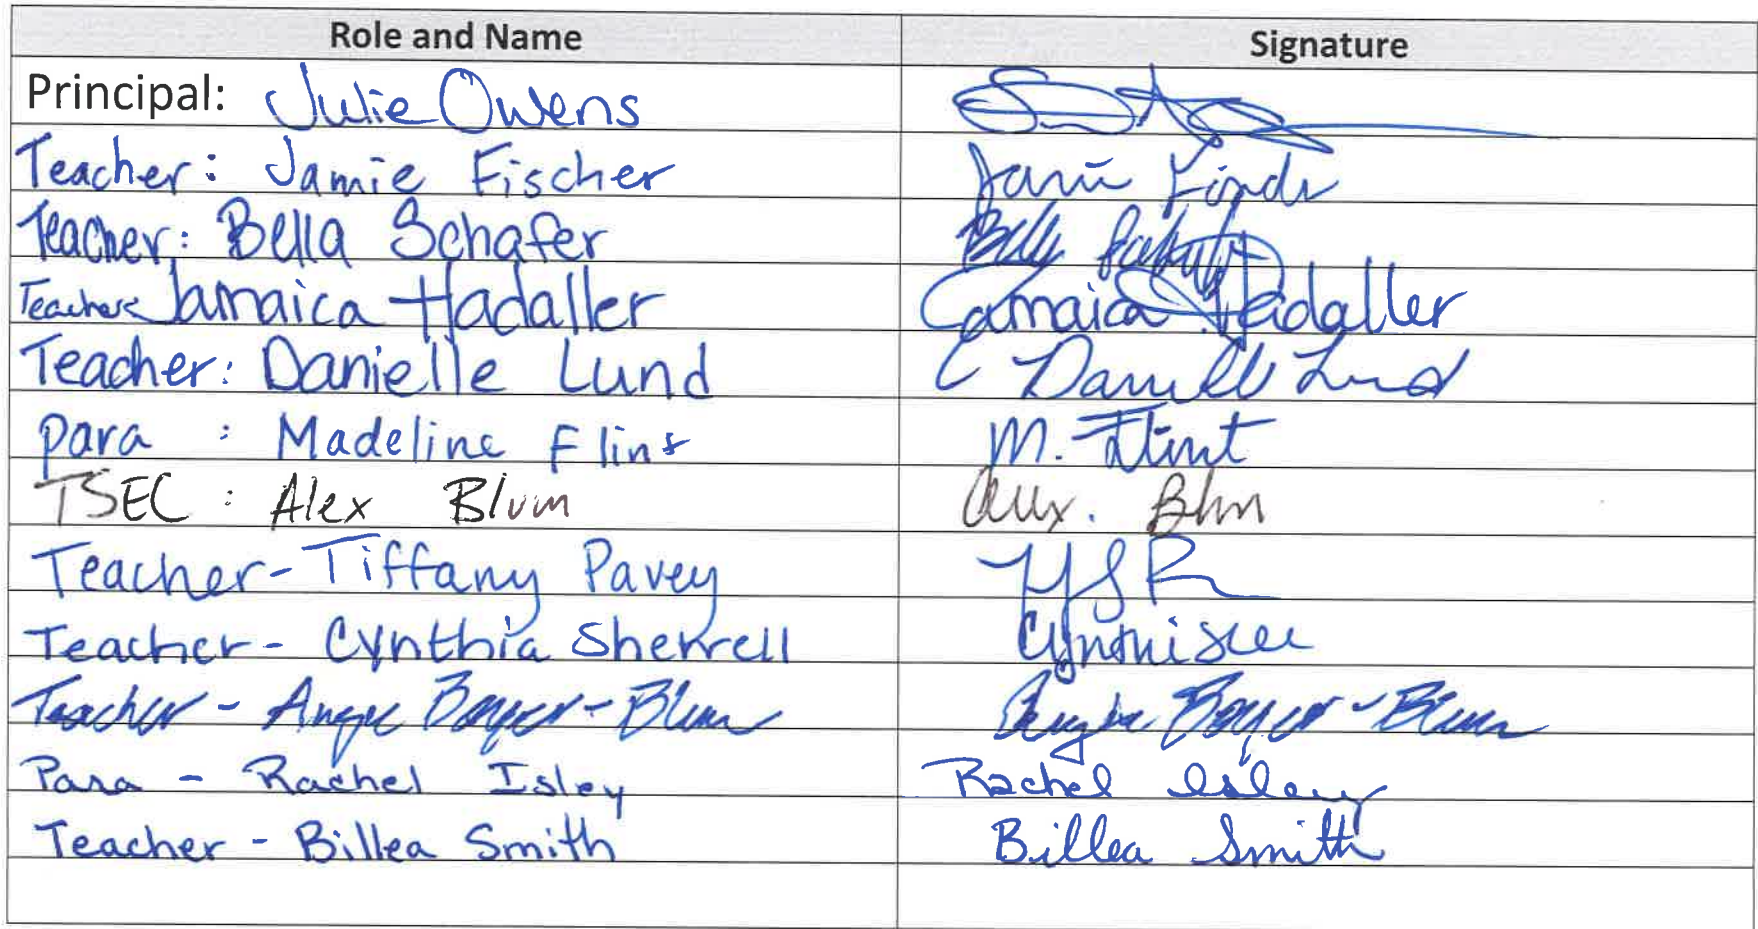 Role and Name Signature
Principal: Julie Owens
Teacher: Jamie Fischer
Teacher: Bella Schafer
Teacher: Jamaica Hadaller Jamaica Hadaller
Teacher: Danielle Lund Danielle Lund
para : Madeline Flint M. Flint
TSEC : Alex Blum Alex. Blum
Teacher- Tiffany Pavey
Teacher- Cynthia Sherrell
Teacher - Angie Boyer-Blum Angie Boyer-Blum
Para - Rachel Isley Rachel Isley
Teacher - Billea Smith Billea Smith